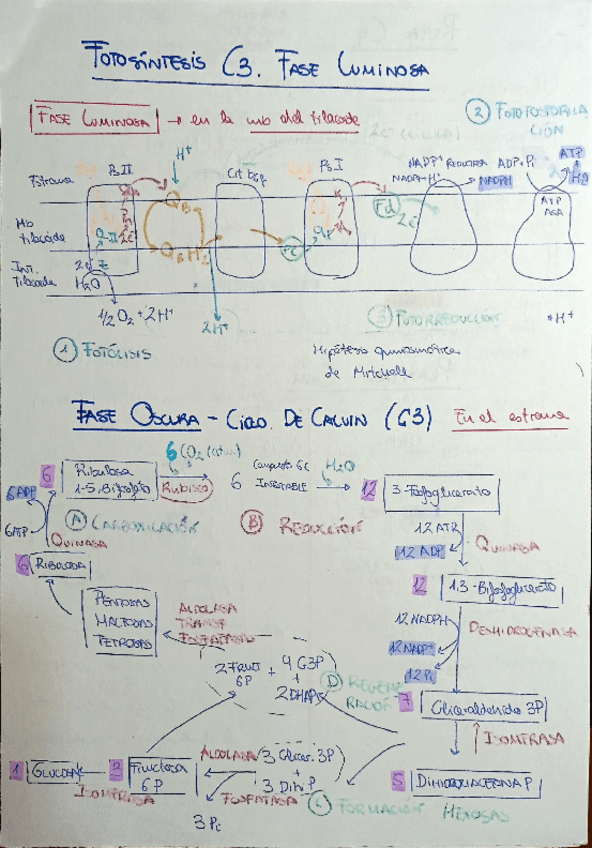 FOTOSÍNTESIS C3. FASE LUMINOSA
FASE LUMINOSA → en la mb del tilacoide
② FOTOFOSFORILACIÓN
Estroma
PsII
H⁺
Cit b6f
PsI
NADP⁺ Reductasa
NADPH+H⁺
NADPH
ADP+Pi
ATP
H₂O
QB
Fd
2e⁻
ATP ASA
Mb tilacoide
2e⁻
QBH₂
PC
Int. tilacoide
2e⁻
Z
H₂O
½O₂ + 2H⁺
2H⁺
③ FOTORREDUCCIÓN
*H⁺
① FOTÓLISIS
Hipótesis quimiosmótica
de Mitchell
FASE OSCURA - CICLO DE CALVIN (C3) En el estroma
6
Ribulosa
1-5, Bifosfato
6 CO₂
Rubisco
6
Compuesto 6C
INESTABLE
H₂O
12
3-Fosfoglicerato
6ADP
6ATP
QUINASA
Ⓐ CARBOXILACIÓN
Ⓑ REDUCCIÓN
12 ATP
12 ADP
QUINASA
6
RIBULOSA
12
1,3-Bifosfoglicerato
PENTOSAS
MALTOSAS
TETROSAS
ALDOLASA
TRANSF
FOSFATASAS
12 NADPH
12 NADP⁺
12 Pi
DESHIDROGENASA
2 FRUCT 6P + 4 G3P
+
2 DHAP
Ⓓ REGENERACIÓN
7
Gliceraldehido 3P
ISOMERASA
1
GLUCOSA
ISOMERASA
3
Fructosa
6P
ALDOLASA
3 Glicer. 3P
+
3 Dih. P
FOSFATASA
3 Pi
5
DIHIDROXIACETONA P
FORMACIÓN HEXOSAS